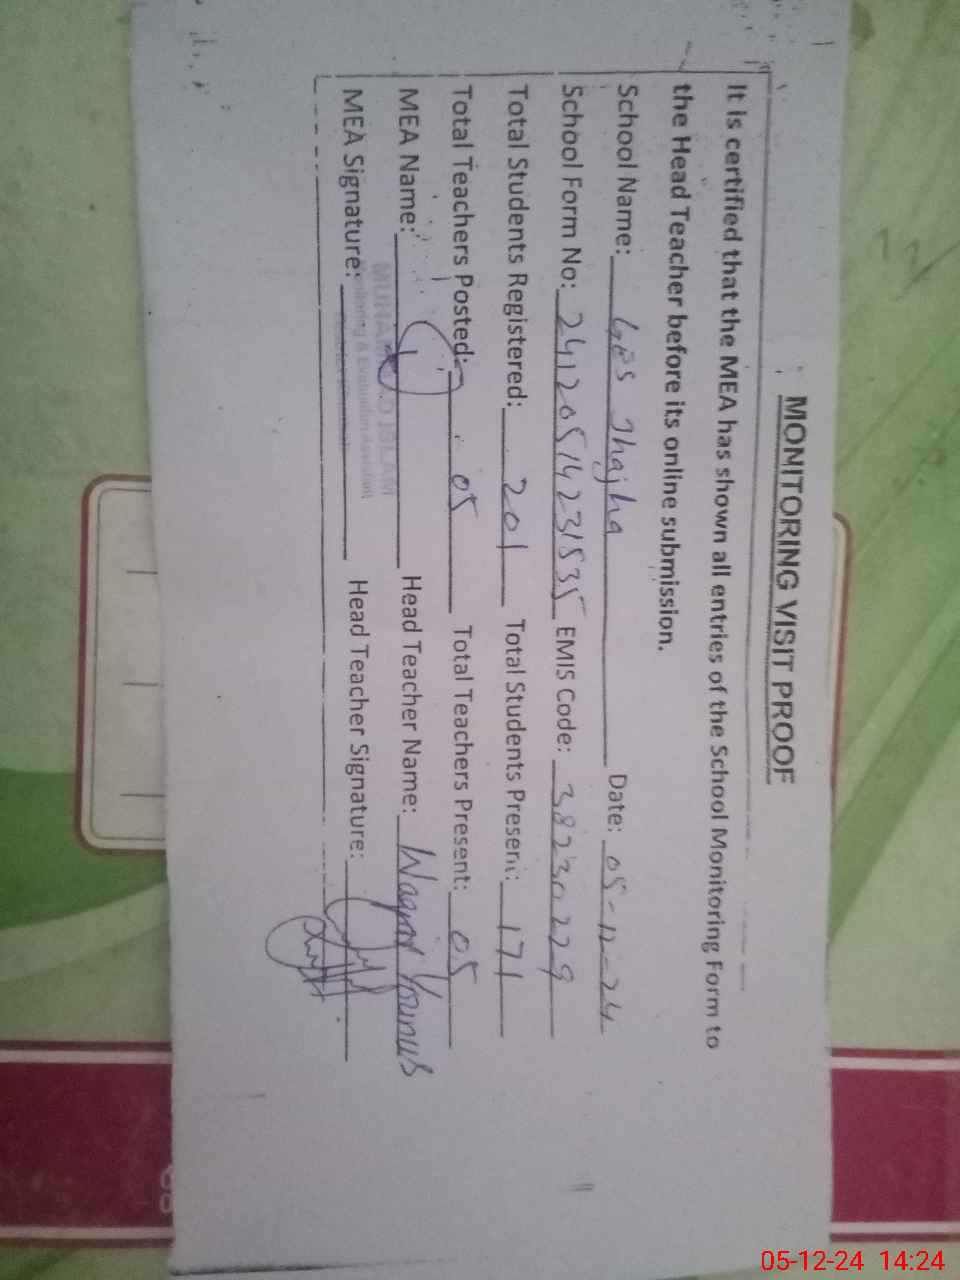 MONITORING VISIT PROOF
It is certified that the MEA has shown all entries of the School Monitoring Form to
the Head Teacher before its online submission.
School Name: GES Jhajha Date: 05-12-24
School Form No: 24120514231535 EMIS Code: 38230229
Total Students Registered: 201 Total Students Present: 171
Total Teachers Posted: 05 Total Teachers Present: 05
MEA Name: Head Teacher Name: Waqar Younus
MUHAMMAD ISLAM
Monitoring & Evaluation Assistant
MEA Signature: Head Teacher Signature:
05-12-24 14:24